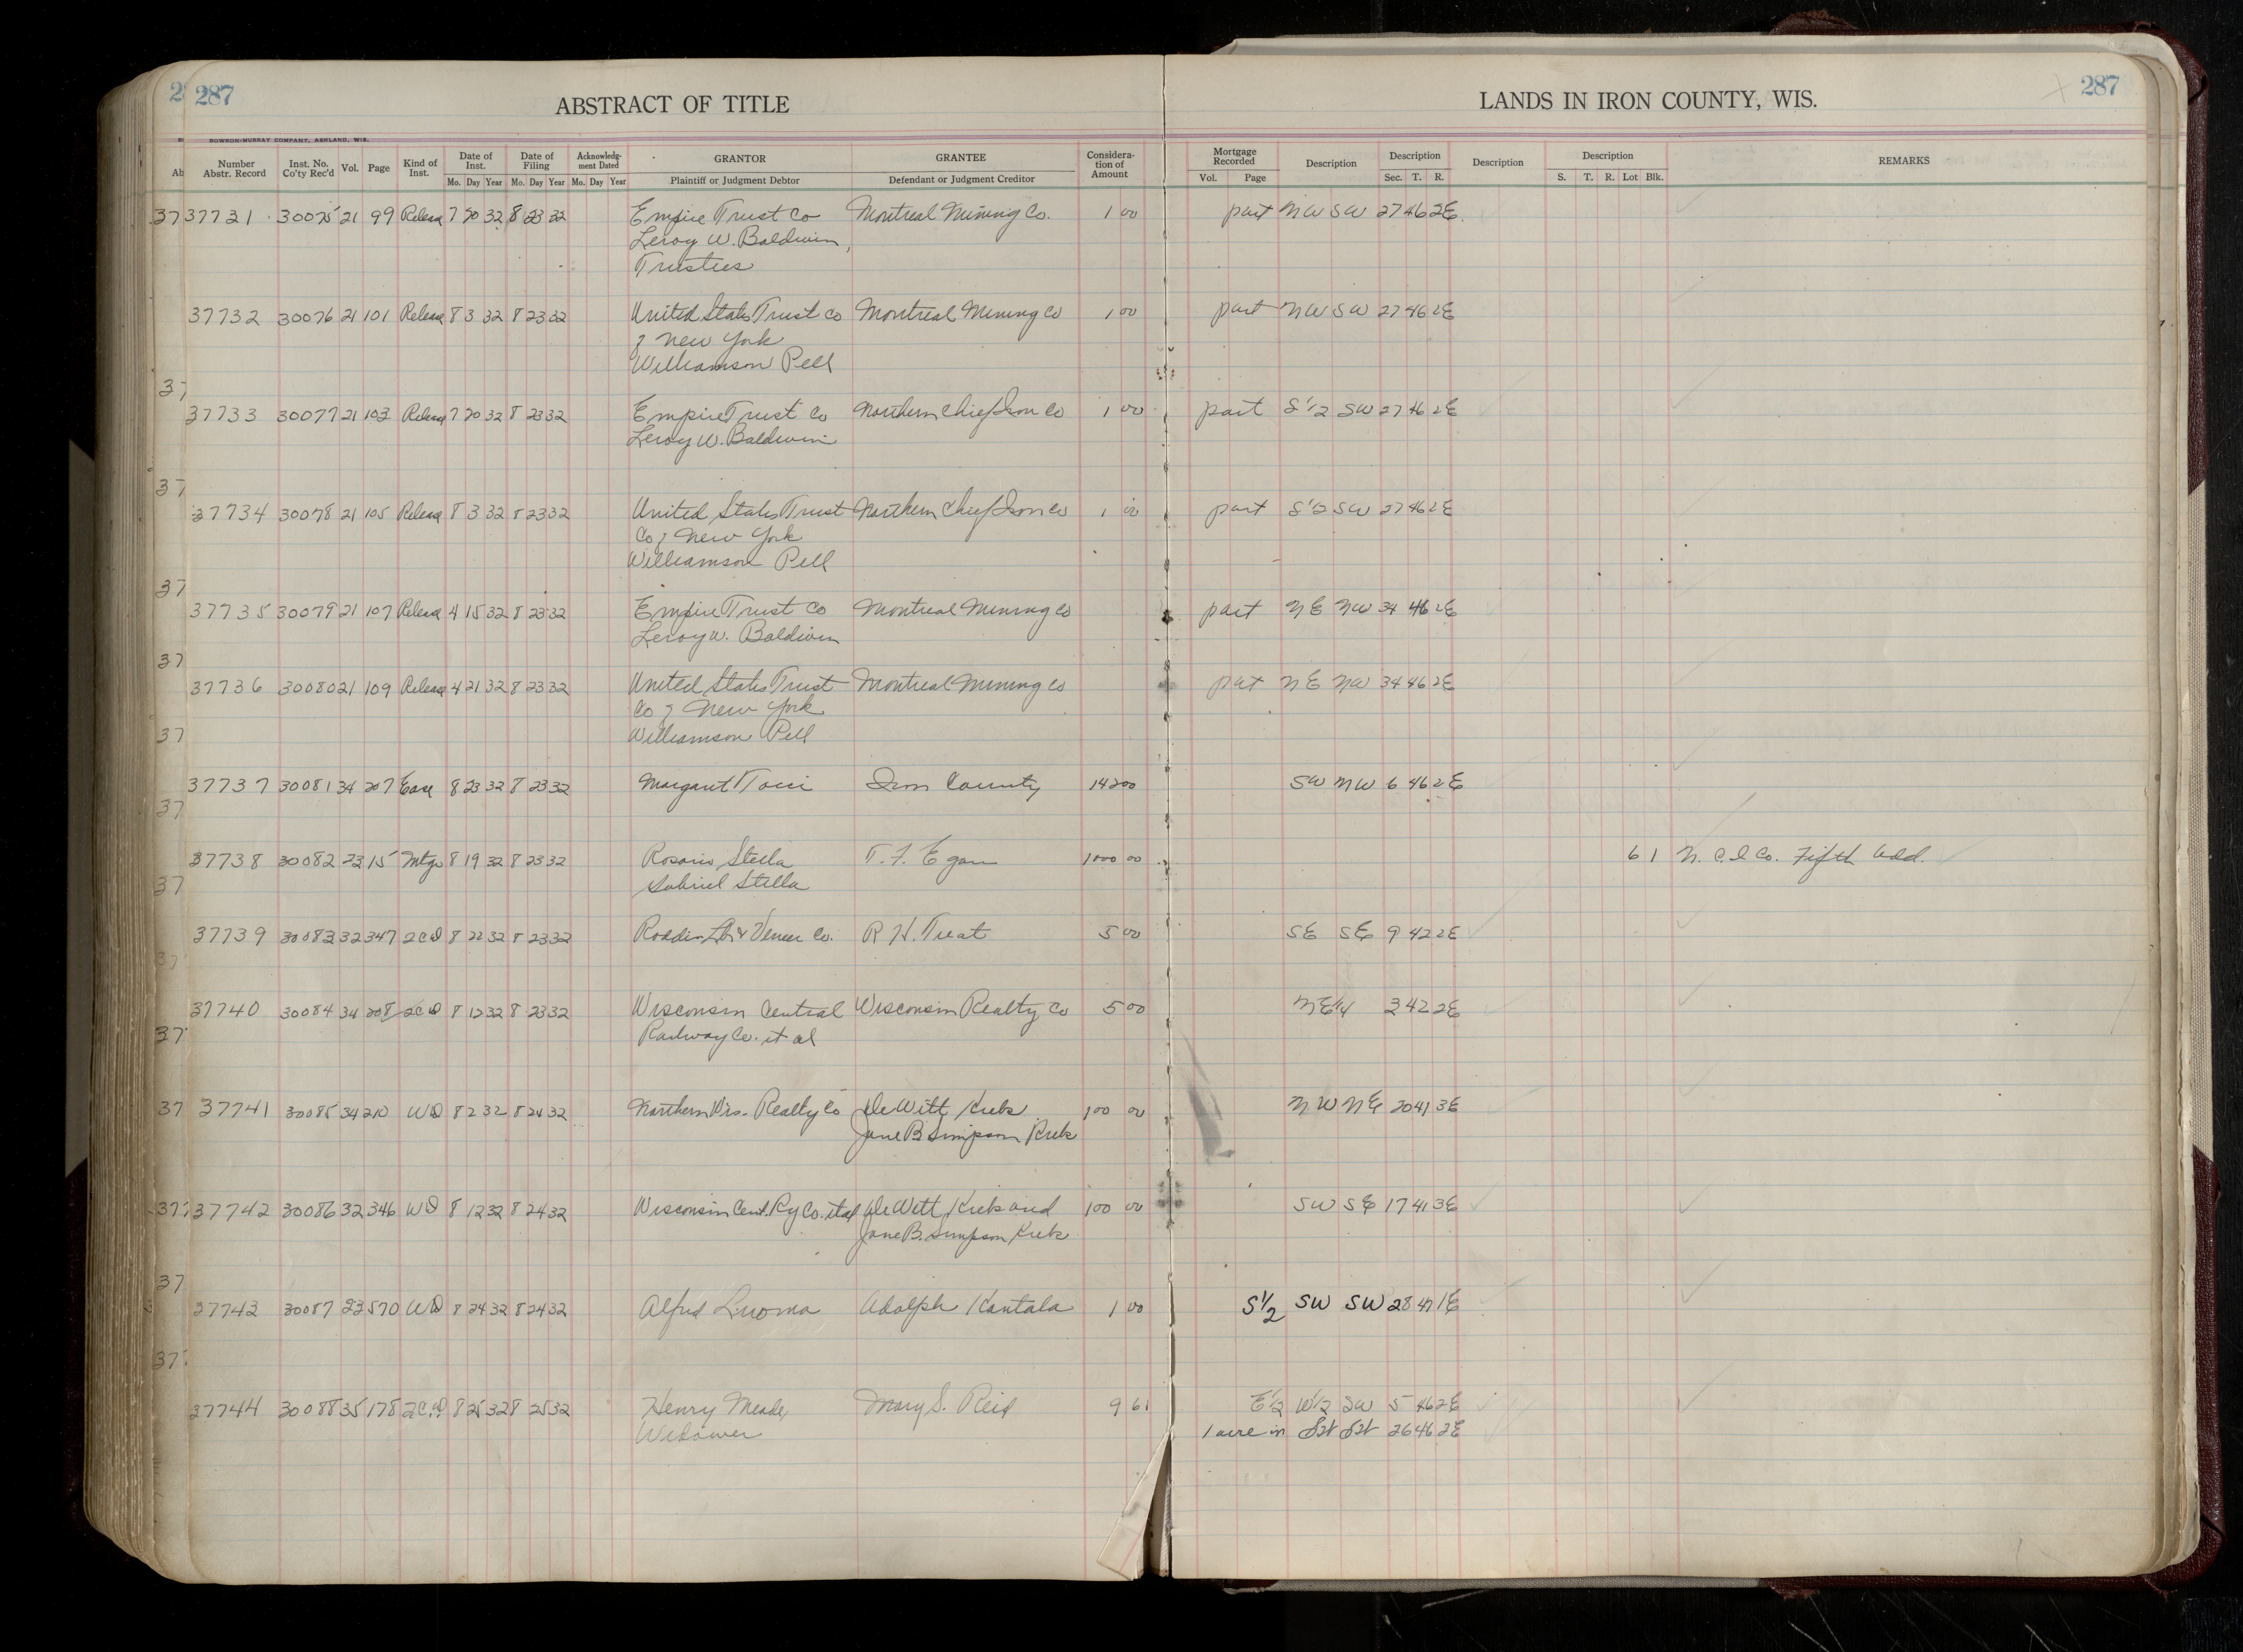 287 ABSTRACT OF TITLE LANDS IN IRON COUNTY, WIS. 287
BOWRON-MURRAY COMPANY, ASHLAND, WIS.
Number Abstr. Record Inst. No. Co'ty Rec'd Vol. Page Kind of Inst. Date of Inst. Mo. Day Year Date of Filing Mo. Day Year Acknowledgment Dated Mo. Day Year GRANTOR Plaintiff or Judgment Debtor GRANTEE Defendant or Judgment Creditor Consideration of Amount Mortgage Recorded Vol. Page Description Description Sec. T. R. Description Description S. T. R. Lot Blk. REMARKS
37731 30075 21 99 Release 7 20 32 8 23 32 Empire Trust Co Montreal Mining Co. 1 00 part NW SW 27 46 2E
Leroy W. Baldwin,
Trustees
37732 30076 21 101 Release 8 3 32 8 23 32 United States Trust Co Montreal Mining Co 1 00 part NW SW 27 46 2E
of New York
Williamson Pell
37733 30077 21 103 Release 7 20 32 8 23 32 Empire Trust Co Northern Chief Iron Co 1 00 part S 1/2 SW 27 46 2E
Leroy W. Baldwin
37734 30078 21 105 Release 8 3 32 8 23 32 United States Trust Northern Chief Iron Co 1 00 part S 1/2 SW 27 46 2E
Co of New York
Williamson Pell
37735 30079 21 107 Release 4 15 32 8 23 32 Empire Trust Co Montreal Mining Co part NE NW 34 46 2E
Leroy W. Baldwin
37736 30080 21 109 Release 4 21 32 8 23 32 United States Trust Montreal Mining Co part NE NW 34 46 2E
Co of New York
Williamson Pell
37737 30081 34 207 Ease 8 23 32 8 23 32 Margaret Iron County 142 00 SW NW 6 46 2E
37738 30082 23 15 Mtge 8 19 32 8 23 32 Rosario Stella T. F. Egan 1000 00 6 1 N. C. I Co. Fifth Add.
Gabriel Stella
37739 30083 32 347 2CD 8 22 32 8 23 32 Roddis Lbr & Veneer Co. R H. Treat 5 00 SE SE 9 42 2E
37740 30084 34 208 2CD 8 12 32 8 23 32 Wisconsin Central Wisconsin Realty Co 5 00 NE 1/4 3 42 2E
Railway Co. et al
37741 30085 34 210 WD 8 2 32 8 24 32 Northern Wis. Realty Co DeWitt 100 00 NW NE 20 41 3E
Jane B Simpson
37742 30086 32 346 WD 8 12 32 8 24 32 Wisconsin Cent. Ry Co. et al DeWitt and 100 00 SW SE 17 41 3E
Jane B. Simpson
37743 30087 23 570 WD 8 24 32 8 24 32 Alfred Luoma Adolph Kantala 1 00 S 1/2 SW SW 28 47 1E
37744 30088 35 178 2CD 8 25 32 8 25 32 Henry Meade, Mary S. Reid 9 61 E 1/2 W 1/2 SW 5 46 2E
Widower 1 acre in 26 46 2E